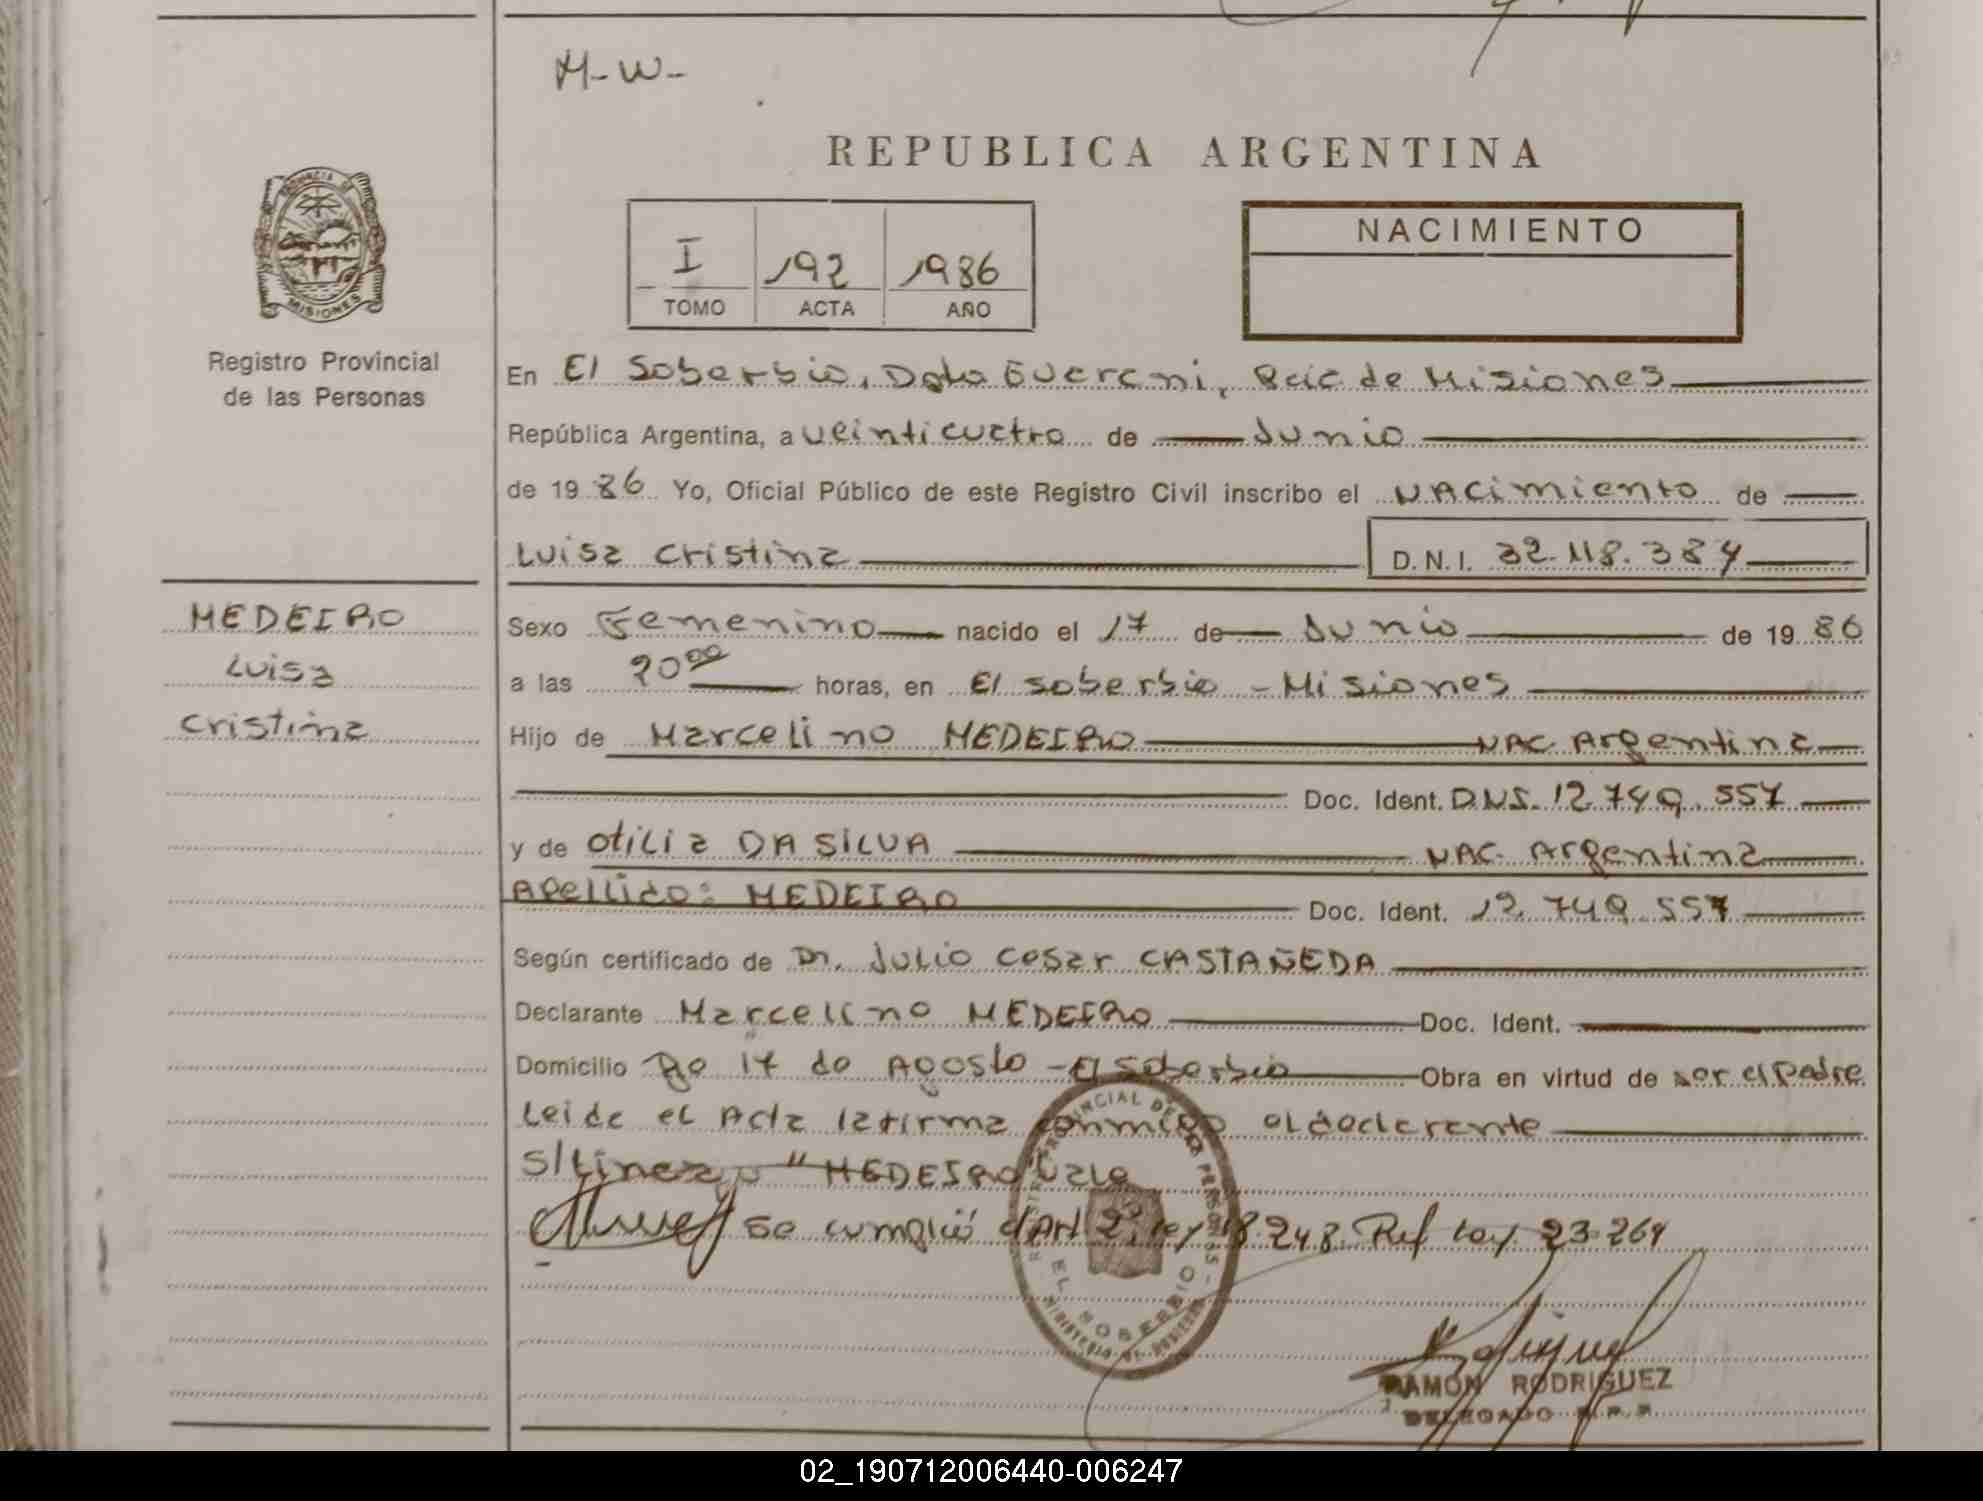 H-W-
REPUBLICA ARGENTINA
PROVINCIA DE
MISIONES
Registro Provincial
de las Personas
I 192 1986
TOMO ACTA AÑO
NACIMIENTO
En El Soberbio, Dpto Guarani, Pcia de Misiones
República Argentina, a veinticuatro de Junio
de 1986 Yo, Oficial Público de este Registro Civil inscribo el Nacimiento de
Luisa Cristina D.N.I. 32.118.384
MEDEIRO
Luisa
Cristina
Sexo Femenino nacido el 17 de Junio de 1986
a las 20 00 horas, en El Soberbio - Misiones
Hijo de Marcelino MEDEIRO NAC. Argentina
Doc. Ident. D.N.I. 12.749.557
y de Otilia DA SILVA NAC. Argentina
Apellido: MEDEIRO Doc. Ident. 12.749.557
Según certificado de Dr. Julio Cesar CASTAÑEDA
Declarante Marcelino MEDEIRO Doc. Ident.
Domicilio Bo 17 de Agosto - El Soberbio Obra en virtud de ser el padre
Leida el Acta la firma conmigo el declarante
S/Linea "MEDEIRO" Vale
Se cumplió el Art 2º, ley 18.248. Ref ley 23.264
EL SOBERBIO
MINISTERIO DE GOBIERNO
RAMON RODRIGUEZ
DELEGADO R.P.P.
02_190712006440-006247